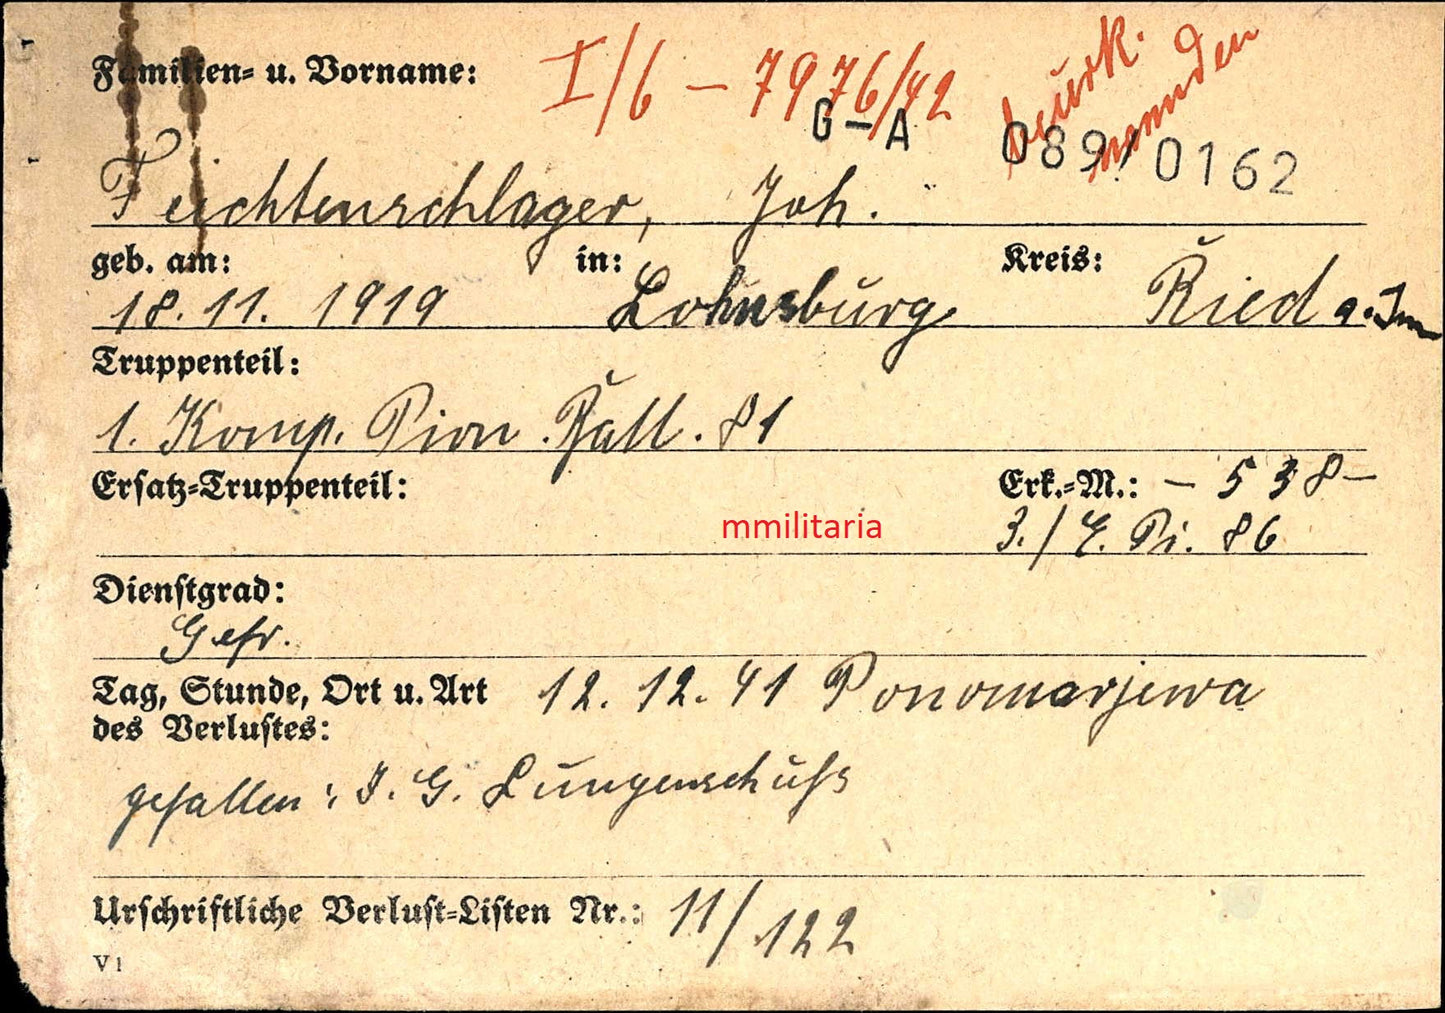 Familien- u. Vorname: I/6 - 7976/42 beurk.
G-A 089/0162
Feichtenschlager, Joh.
geb. am: in: Kreis:
18.11. 1919 Lohnsburg Ried a. Inn
Truppenteil:
1. Komp. Pion. Batl. 81
Ersatz-Truppenteil: Erk.-M.: - 538 -
mmilitaria
3./E. Pi. 86
Dienstgrad:
Gefr.
Tag, Stunde, Ort u. Art 12. 12. 41 Ponomarjewa
des Verlustes:
gefallen: I. G. Lungenschuß
Urschriftliche Verlust-Listen Nr.: 11/122
V 1